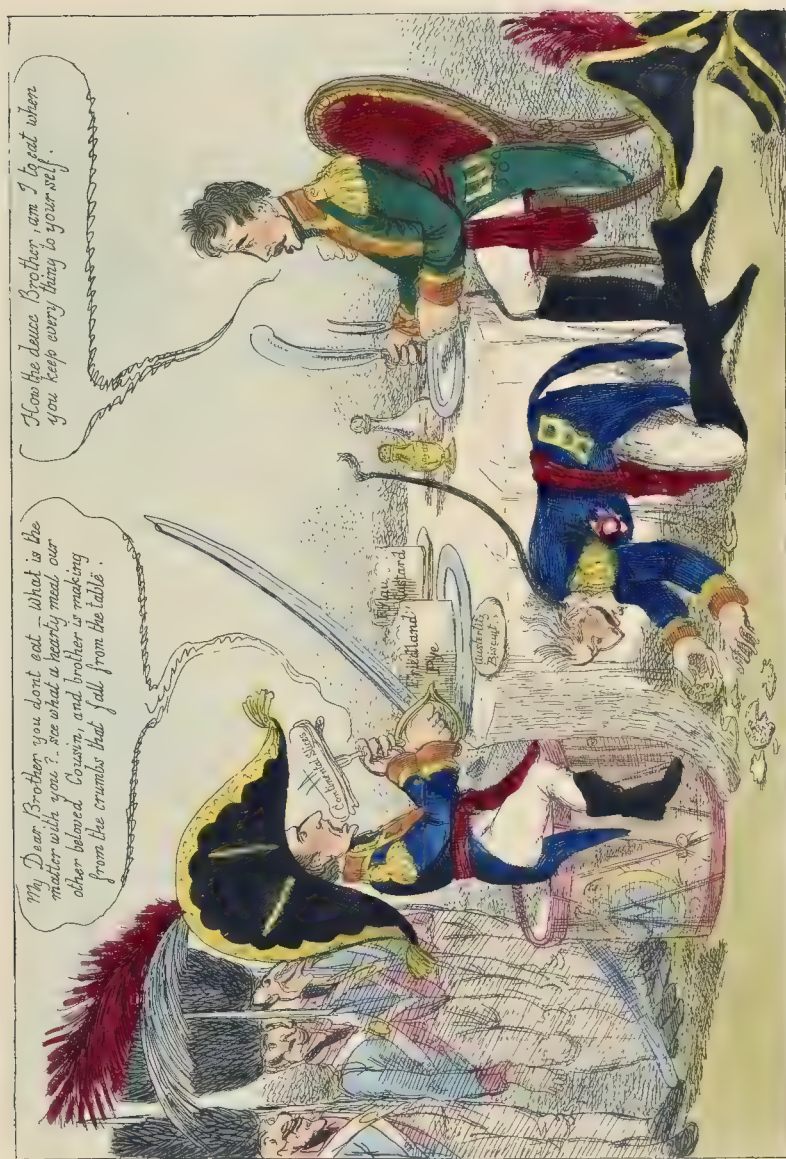 My Dear Brother you dont eat – What is the
matter with you? – see what a hearty meal our
other beloved Cousin, and brother is making
from the crumbs that fall from the table.
How the deuce Brother, am I to eat when
you keep every thing to your self.
Continental Slices
Eylau
Custard
Friedland
Pye
Austerlitz
Biscuit